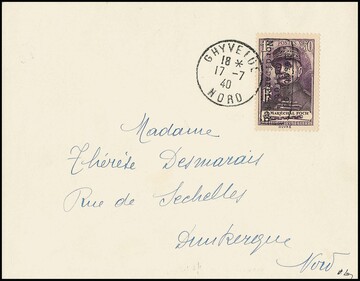 GHYVELDE
18 *
17 -7
40
NORD
MARECHAL FOCH
Madame
Thérèse Desmarais
Rue de Sechelles
Dunkerque
Nord